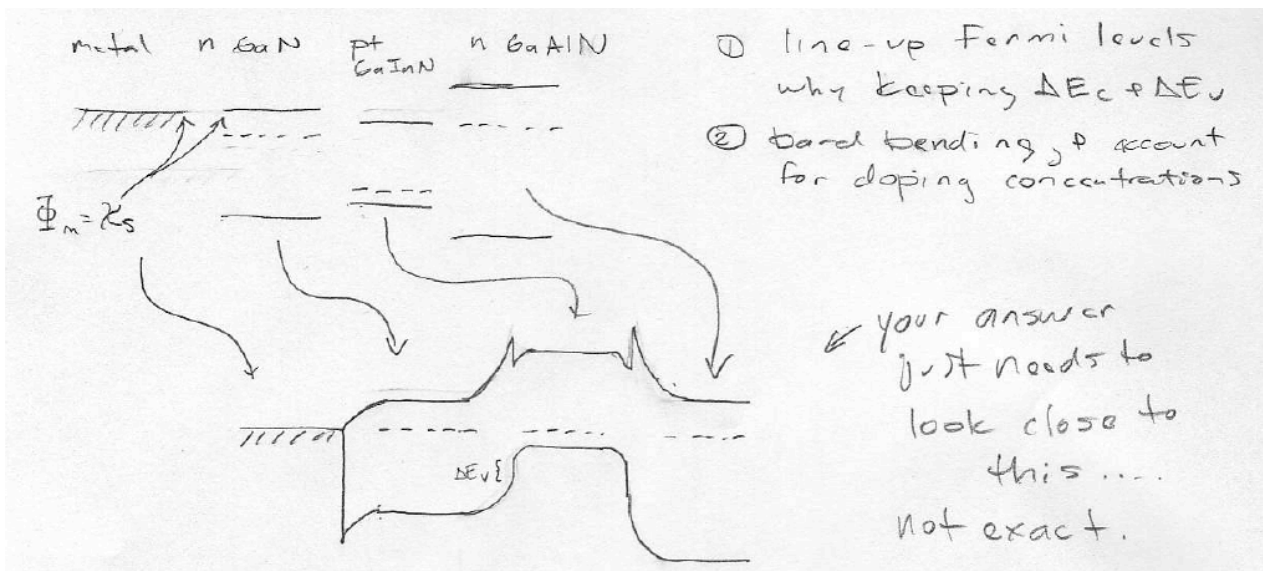 metal n GaN pt n GaAlN
GaInN
① line-up Fermi levels
why keeping ΔEc & ΔEv
② band bending, & account
for doping concentrations
Φm = χs
ΔEv{
your answer
just needs to
look close to
this....
not exact.